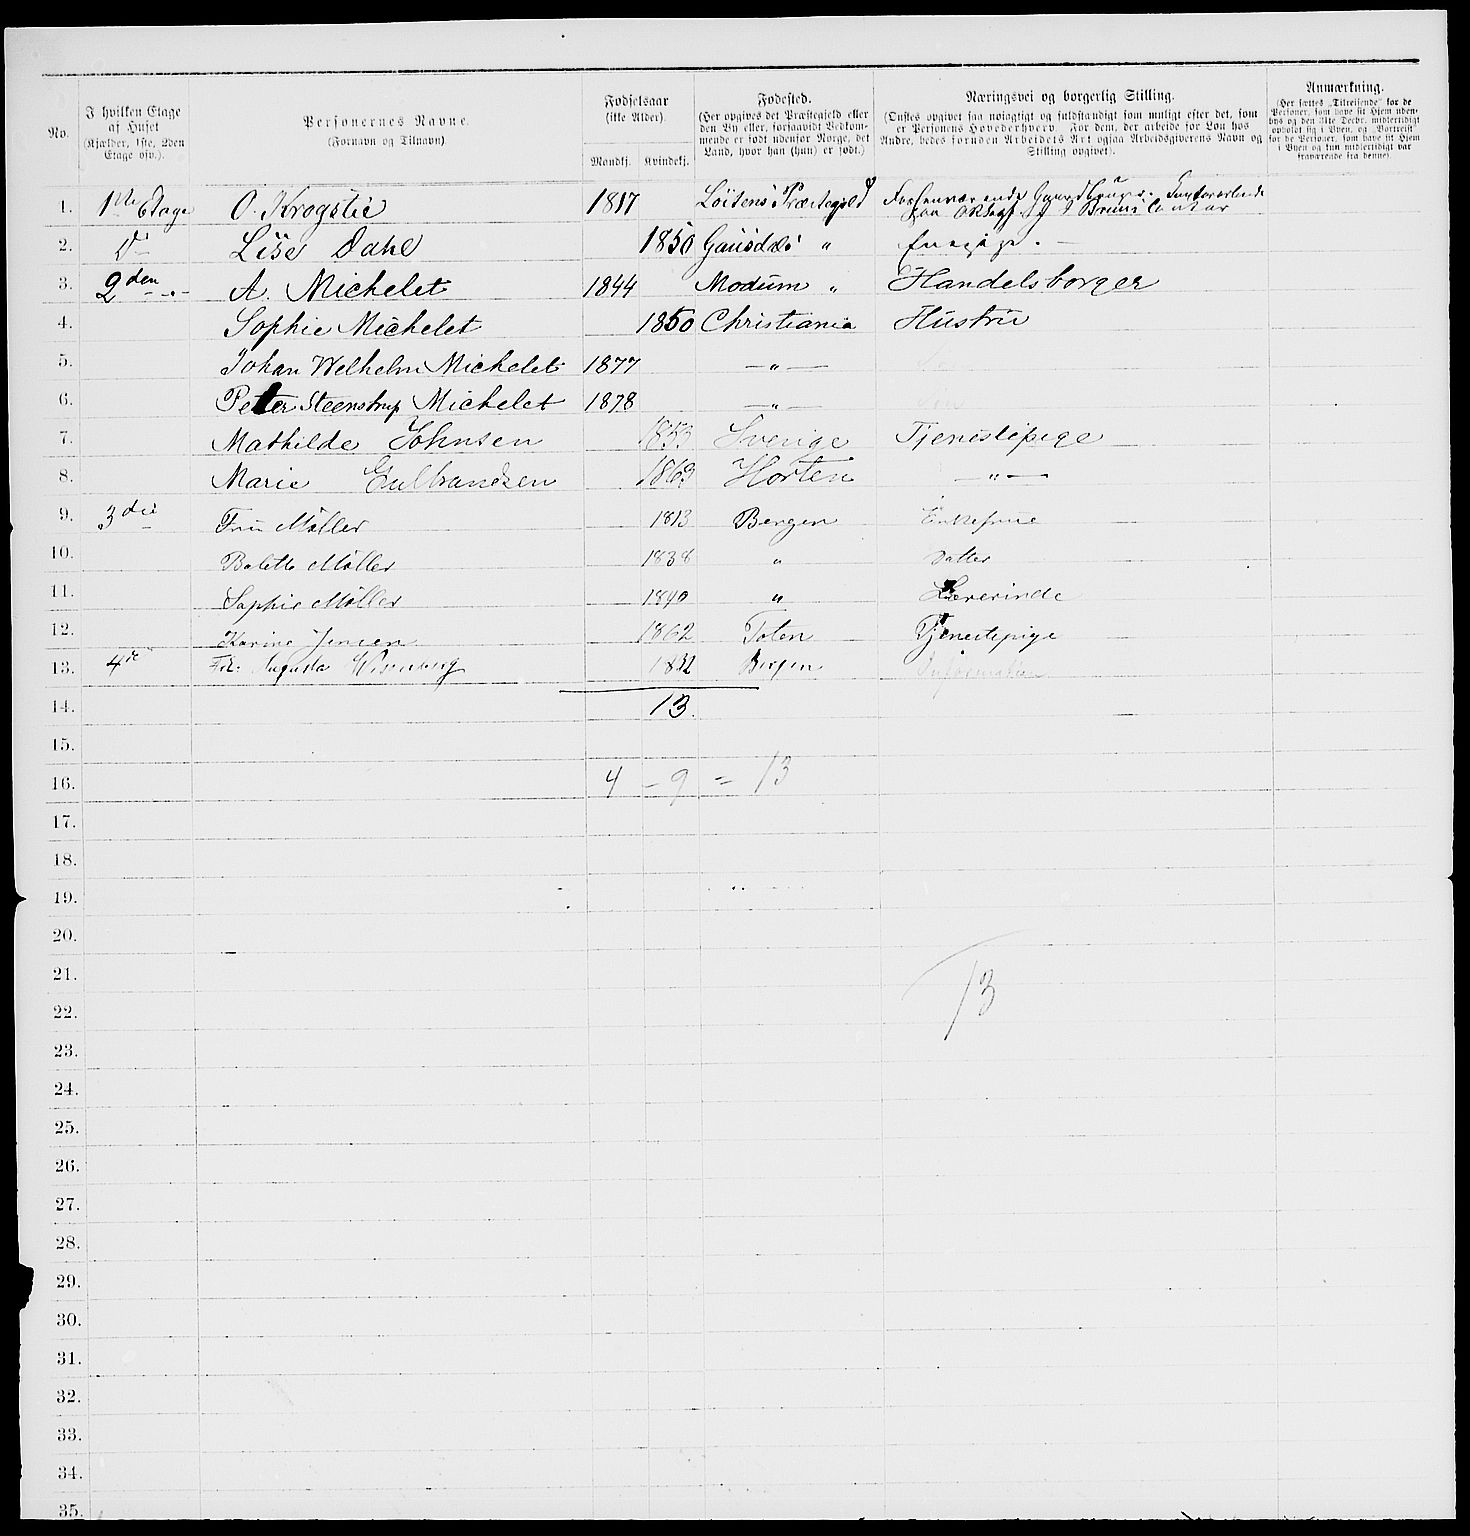 No.
I hvilken Etage
af Huset
(Kjælder, 1ste, 2den
Etage osv.).
Personernes Navne.
(Fornavn og Tilnavn)
Fødselsaar
(ikke Alder).
Mandkj. Kvindekj.
Fødested.
(Her opgives det Præstegjeld eller
den By eller, forsaavidt Vedkom-
mende er født udenfor Norge, det
Land, hvor han (hun) er født.)
Næringsvei og borgerlig Stilling.
(Ønskes opgivet saa nøiagtigt og fuldstændigt som muligt efter det, som
er Personens Hovederhverv. For dem, der arbeide for Løn hos
Andre, bedes foruden Arbeidets Art ogsaa Arbeidsgiverens Navn og
Stilling opgivet).
Anmærkning.
(Her sættes „Tilreisende" for de
Personer, som have sit Hjem uden-
bys og den 31te Decbr. midlertidigt
opholdt sig i Byen, og „Bortreist"
for de Personer, som have sit Hjem
i Byen og kun midlertidigt var
fraværende fra denne).
1. 1ste Etage O. Krogstie 1817 Løitens Præstegjeld Forhenværende Gaardbruger.
paa
2. Do Lise Dahl 1850 Gausdals „
3. 2den „ A. Michelet 1844 Modum „ Handelsborger
4. Sophie Michelet 1850 Christiania Hustru
5. Johan Welhelm Michelet 1877 — „ —
6. Peter Steenstrup Michelet 1878 — „ —
7. Mathilde Johnsen 1853 Sverige Tjenestepige
8. Marie Gulbrandsen 1863 Horten — „ —
9. 3die Fru Møller 1813 Bergen Enkefrue
10. Bolette Møller 1838 „ Datter
11. Sophie Møller 1840 „ Lærerinde
12. Karine Jensen 1862 Toten Tjenestepige
13. 4de Frk. Augusta 1832 Bergen
14. 13.
15.
16. 4 – 9 = 13
17.
18.
19.
20.
21.
13
22.
23.
24.
25.
26.
27.
28.
29.
30.
31.
32.
33.
34.
35.